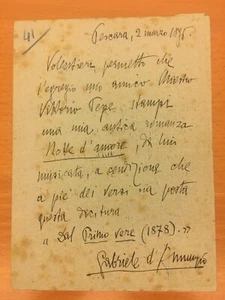 41
Pescara, 2 marzo 1896.
Volentieri permetto che
l'egregio mio amico Maestro
Vittorio Pepe stampi
una mia antica romanza
Notte d'amore, da lui
musicata, a condizione che
a piè dei versi sia posta
questa dicitura
"Dal Primo vere (1878)."
Gabriele d'Annunzio